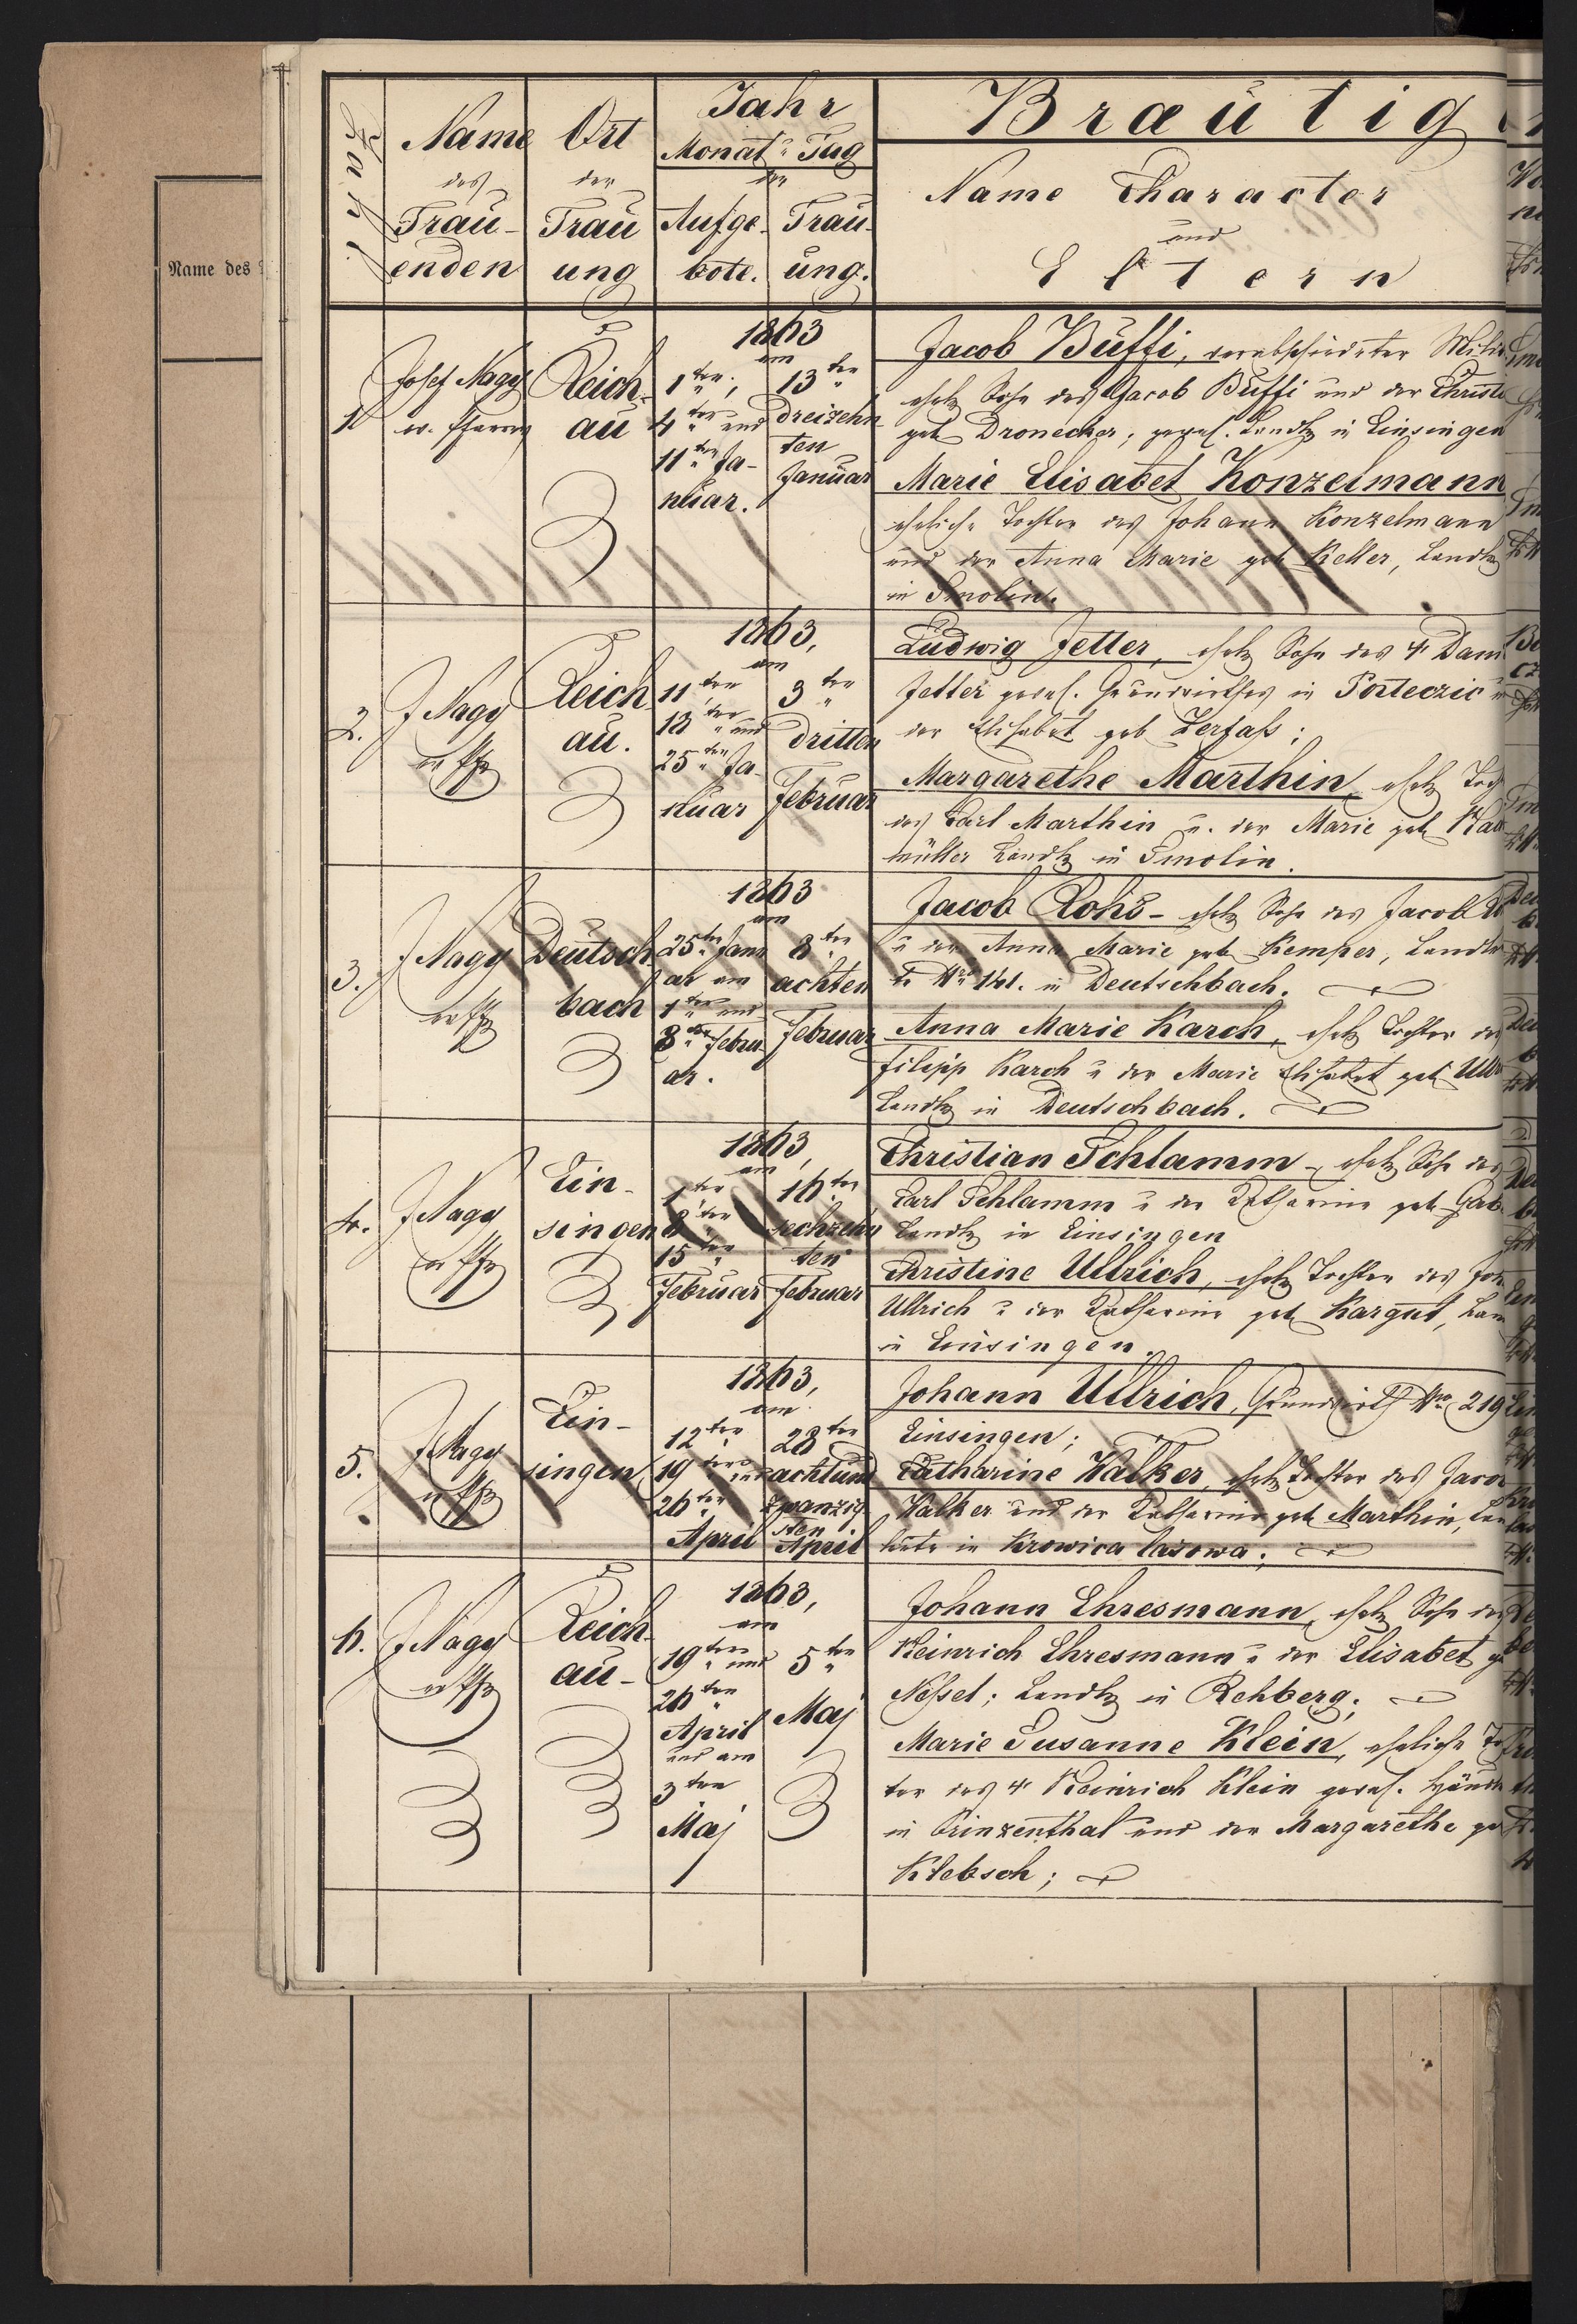 Name des
Zahl.
Name
des
Trau-
enden
Ort
der
Trau
ung
Jahr
Monat u Tag
der
Aufge-
bote.
Trau-
ung.
Bräutig
Name Character
und
Eltern
1
Josef Nagy
ev. Pfarrer
Reich-
au
1863
am
1ten,
4ten und
11ten Ja-
nuar.
13ten
dreizehn
ten
Januar
Jacob Buffi, verabschiedeter Milit
ehel. Sohn des Jacob Buffi und der Christi
geb Dronecker, gewes. Landl. in Einsingen
Marie Elisabet Konzelmann
eheliche Tochter des Johann Konzelmann
und der Anna Marie geb Keller, Landl.
in Smolin.
2.
J Nagy
Reich
au.
1863,
am
11ten
18ten und
25ten Ja-
nuar
3ten
dritten
Februar
Ludwig Jetter, ehel. Sohn des Dani
Jetter gewes. Grundwirthes in Porteczic
der Elisabet geb Zerfaß;
Margarethe Marthin, ehel. Toch
des Carl Marthin u. der Marie geb
müller Landl. in Smolin.
3.
J Nagy
Deutsch
bach
1863
am
25ten Janu
ar am
1ten und
8ten Febru-
ar.
8ten
achten
Februar
Jacob Rohs - ehel. Sohn des Jacob
u der Anna Marie geb Kemper, Landl
in Deutschbach.
Anna Marie Karch, ehel. Tochter des
Filipp Karch u der Marie Elisabet geb Ull
Landl. in Deutschbach.
4.
J Nagy
Ein-
singen
1863,
am
1ten
8ten
15ten
Februar
16ten
sechzehn
ten
Februar
Christian Schlamm - ehel. Sohn des
Carl Schlamm u der Katharine geb
Landl. in Einsingen
Christine Ullrich, ehel. Tochter des Joh
Ullrich u der Katharine geb Kargut, Lan
in Einsingen.
5.
J Nagy
Ein-
singen
1863,
am
12ten
19ten und
26ten
April
28ten
achtund
zwanzig
sten
April
Johann Ullrich, Grundwirth Nro 219
Einsingen;
Catharine Walker, ehel. Tochter des Jacob
Walker und der Katharine geb Marthin, Lan
leute in Krowica lasowa.
6.
J Nagy
Reich-
au-
1863,
am
19ten und
26ten
April
und am
3ten
Maj
5ten
Maj
Johann Ehresmann, ehel. Sohn des
Heinrich Ehresmann u der Elisabet g
Nessel; Landl. in Rehberg;
Marie Susanne Klein, eheliche Toch
ter des Heinrich Klein gewes.
in Prinzenthal und der Margarethe ge
Klebsch;